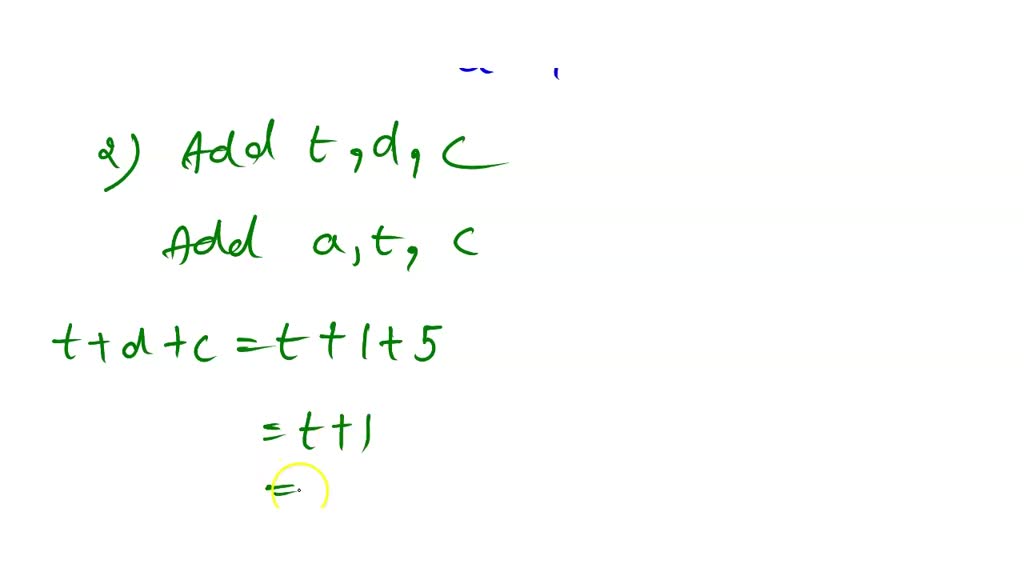 2) Add t, d, c
Add a, t, c
t+d+c = t+1+5
= t+1
=